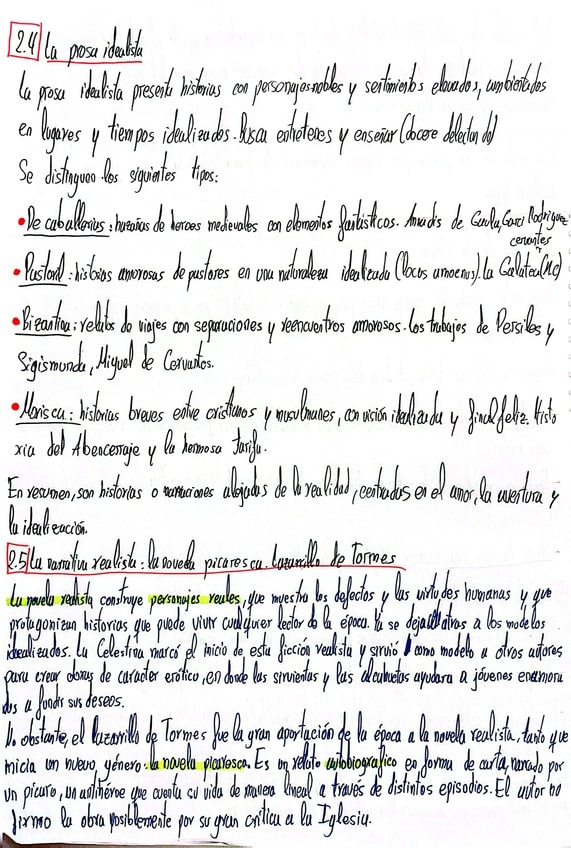 2.4 La prosa idealista
La prosa idealista presenta historias con personajes nobles y sentimientos elevados, ambientados
en lugares y tiempos idealizados. Busca entretener y enseñar (docere delectando)
Se distinguen los siguientes tipos:
• De caballerias: hazañas de heroes medievales con elementos fantásticos. Amadis de Gaula, Garci Rodriguez
cervantes
• Pastoril: historias amorosas de pastores en una naturaleza idealizada (locus amoenus). La Galatea (MC)
• Bizantina: relatos de viajes con separaciones y reencuentros amorosos. Los trabajos de Persiles y
Sigismunda, Miguel de Cervantes.
• Morisca: historias breves entre cristianos y musulmanes, con visión idealizada y final feliz. Histo
ria del Abencerraje y la hermosa Jarifa.
En resumen, son historias o narraciones alejadas de la realidad, centradas en el amor, la aventura y
la idealización.
2.5 La narrativa realista: la novela picaresca. Lazarillo de Tormes
La novela realista construye personajes reales, que muestra los defectos y las virtudes humanas y que
protagonizan historias que puede vivir cualquier lector de la época. Ya se deja atras a los modelos
idealizados. La Celestina marcó el inicio de esta ficción realista y sirvió como modelo a otros autores
para crear obras de caracter erótico, en donde las sirvientas y las alcahuetas ayudara a jóvenes enamora
dos a fundir sus deseos.
No obstante, el Lazarillo de Tormes fue la gran aportación de la época a la novela realista, tanto que
inicia un nuevo género: la novela picaresca. Es un relato autobiografico en forma de carta, narado por
un pícaro, un antihéroe que cuenta su vida de manera lineal a través de distintos episodios. El autor no
firmo la obra posiblemente por su gran crítica a la Iglesia.